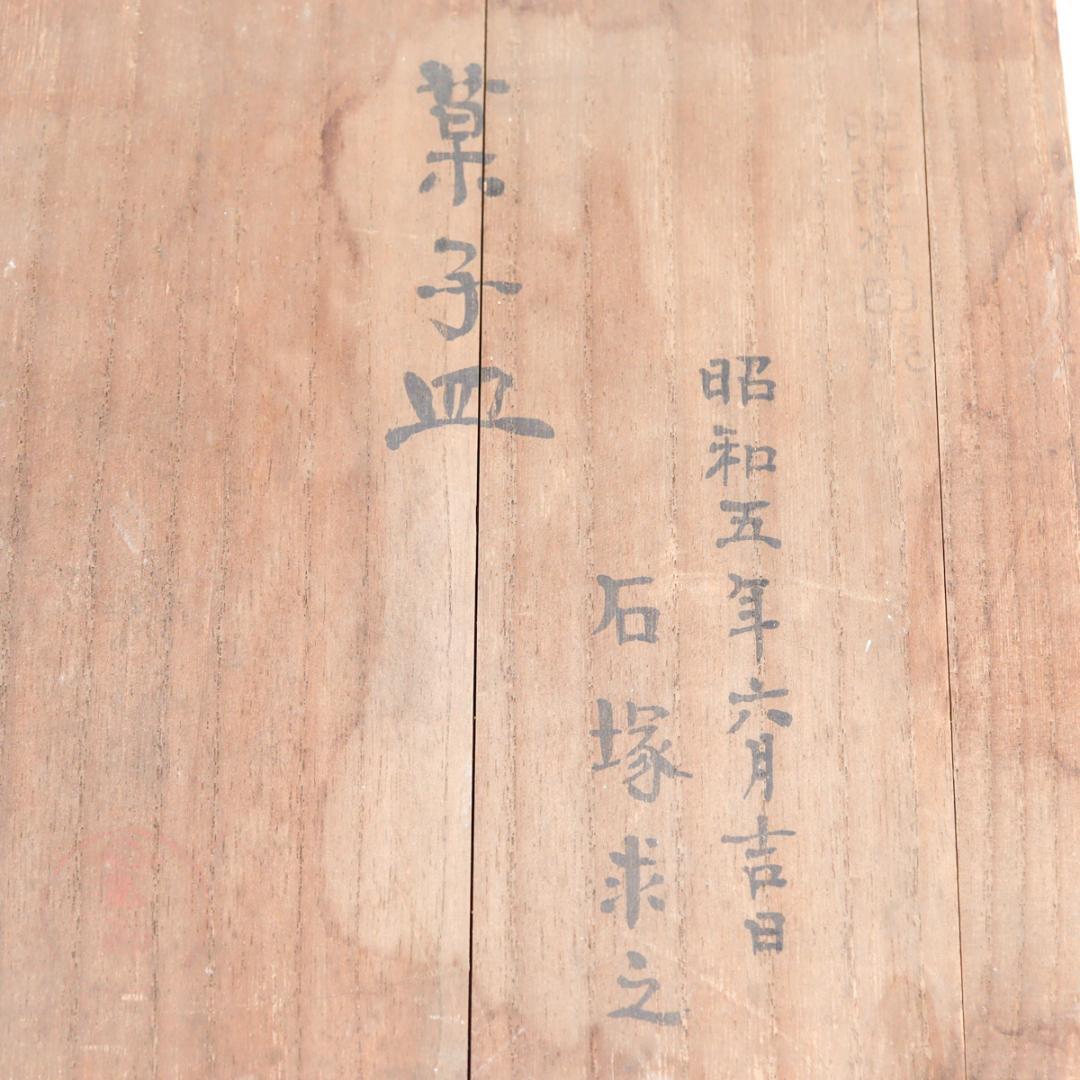 昭和五年六月吉日
石塚求之
菓子皿